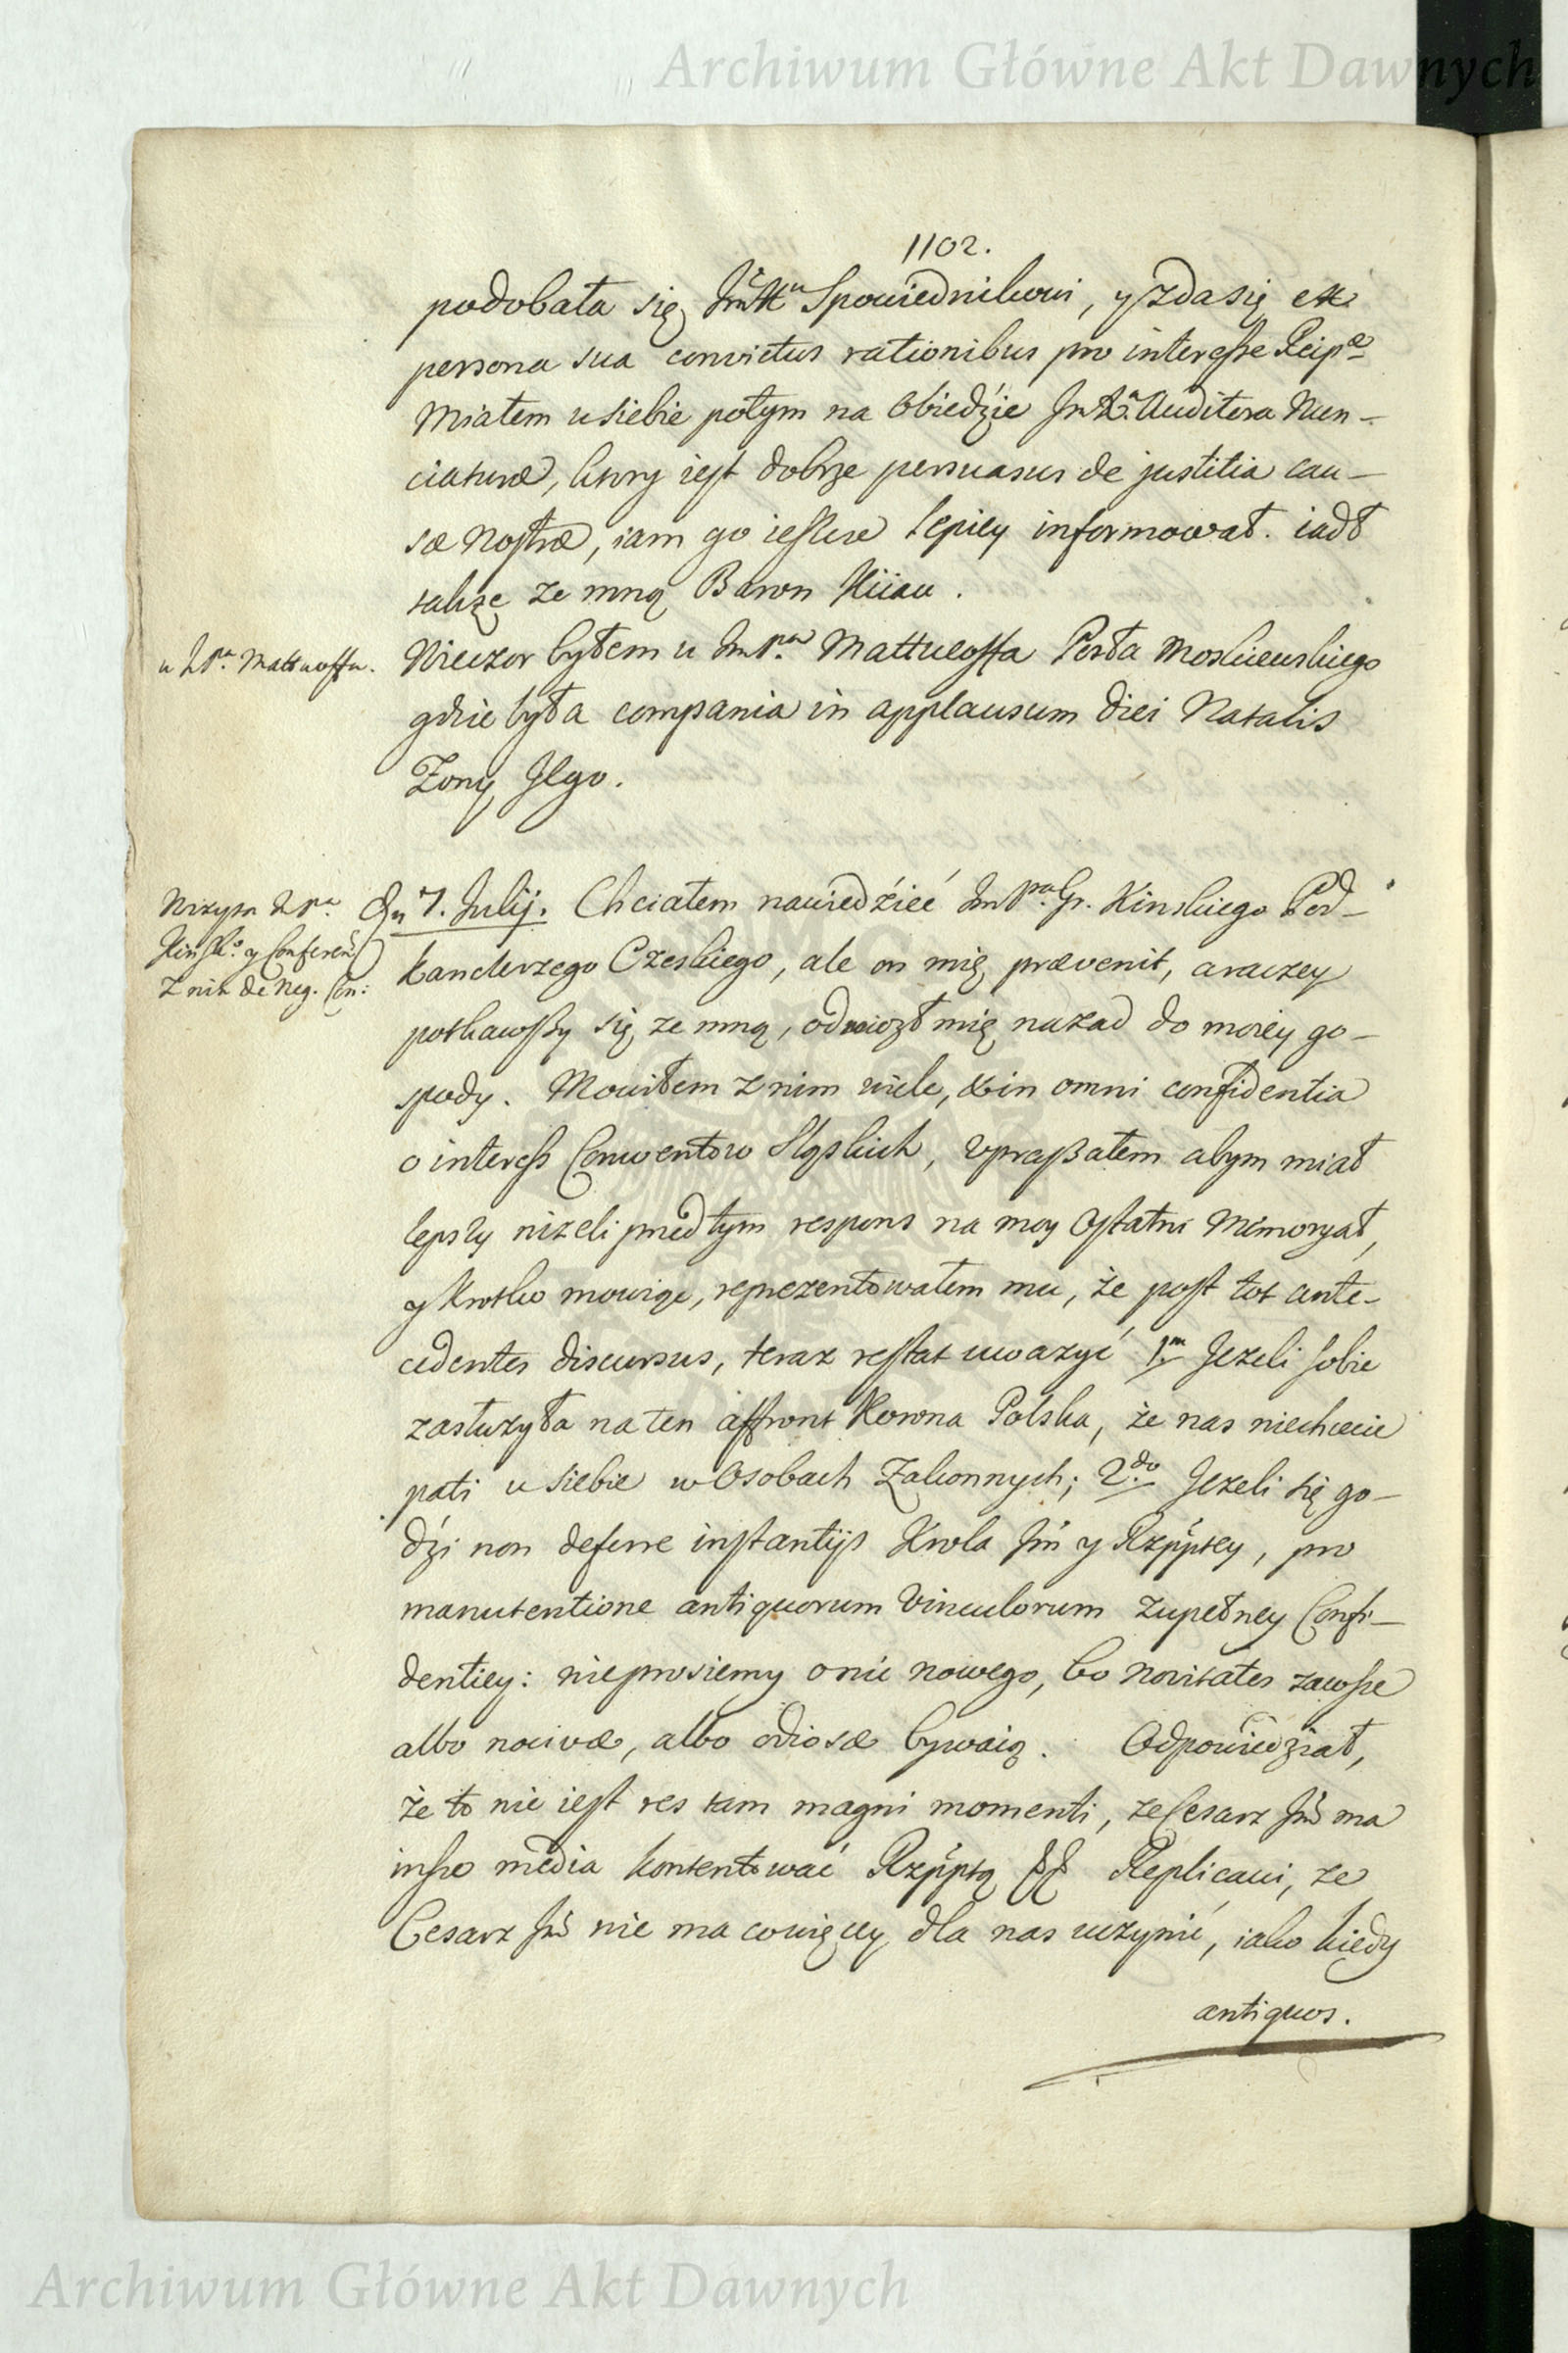 Archiwum Główne Akt Dawnych
1102.
podobała się Jm̃X. Spowiednikowi, y zda się ex
persona sua convictus rationibus pro interesse Reipae
Miałem u siebie potym na Obiedzie JmX.a Auditora Nun-
ciaturæ, ktory iest dobrze persuasus de justitia cau-
sæ nostræ, iam go ieszcze lepiey informował. iadł
także ze mną Baron Kiiau.
u JPa. Mattueoffa.
Wieczor byłem u JmPa. Mattueoffa Posła Moskiewskiego
gdzie była compania in applausum diei Natalis
Zony Jego.
Wizyta JPa.
Kinsko. y Conferen.
z nim de Neg. Con:
Dn 7. Julij. Chciałem nawiedźieć JmPa. Gr. Kinskiego Pod-
kanclerzego Czeskiego, ale on mię prævenit, araczey
potkawszy się ze mną, odwiozł mię nazad do moiey go-
spody. Mowiłem z nim wiele, & in omni confidentia
o interess Conwentow Sląskich, upraszałem abym miał
lepszy nizeli przedtym respons na moy Ostatni Memoryał,
y krotko mowiąc, reprezentowałem mu, że post tot ante-
cedentes discursus, teraz restat uważyć 1m Jezeli sobie
zasłużyła na ten affront Korona Polska, że nas niechcecie
pati u siebie w Osobach Zakonnych; 2do Jezeli się go-
dźi non deferre instantijs Krola Jm̃ y Rzpptey, pro
manutentione antiquorum Vinculorum zupełney Confi-
dentiey: nieprosiemy o nic nowego, bo novitates zawsze
albo nocivæ, albo odiosæ bywaią. Odpowiedział,
że to nie iest res tam magni momenti, ze Cesarz Jm̃ ma
insze media kontentować Rzpptą Replicavi, ze
Cesarz Jm̃ nie ma co więcey dla nas uczynić, iako kiedy
antiquos.
Archiwum Główne Akt Dawnych